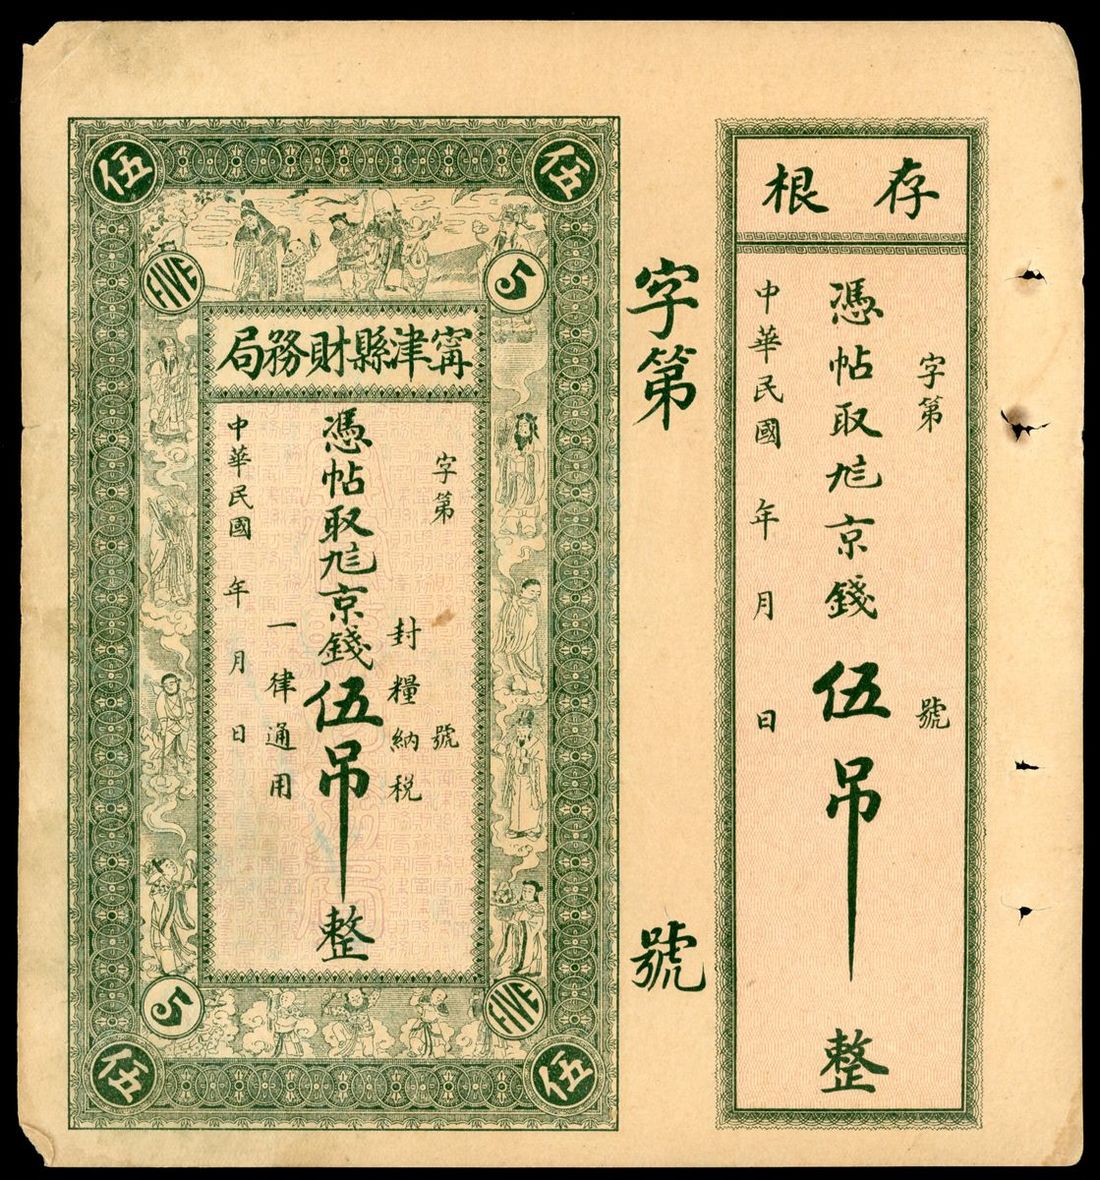 伍
伍
FIVE
5
甯津縣財務局
字第 號
封糧納税
憑帖取京錢伍吊整
一律通用
中華民國 年 月 日
5
FIVE
伍
伍
字第 號
存根
字第 號
憑帖取京錢伍吊整
中華民國 年 月 日